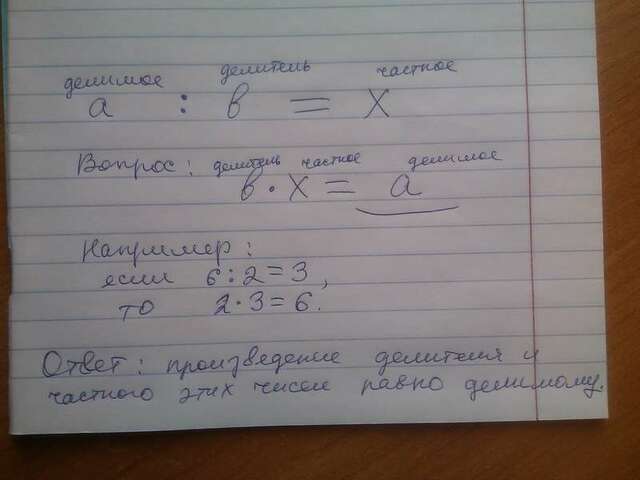 делимое делитель частное
а : в = х
Вопрос: делитель частное делимое
в · х = а
Например:
если 6:2=3,
то 2·3=6.
Ответ: произведение делителя и
частного этих чисел равно делимому.